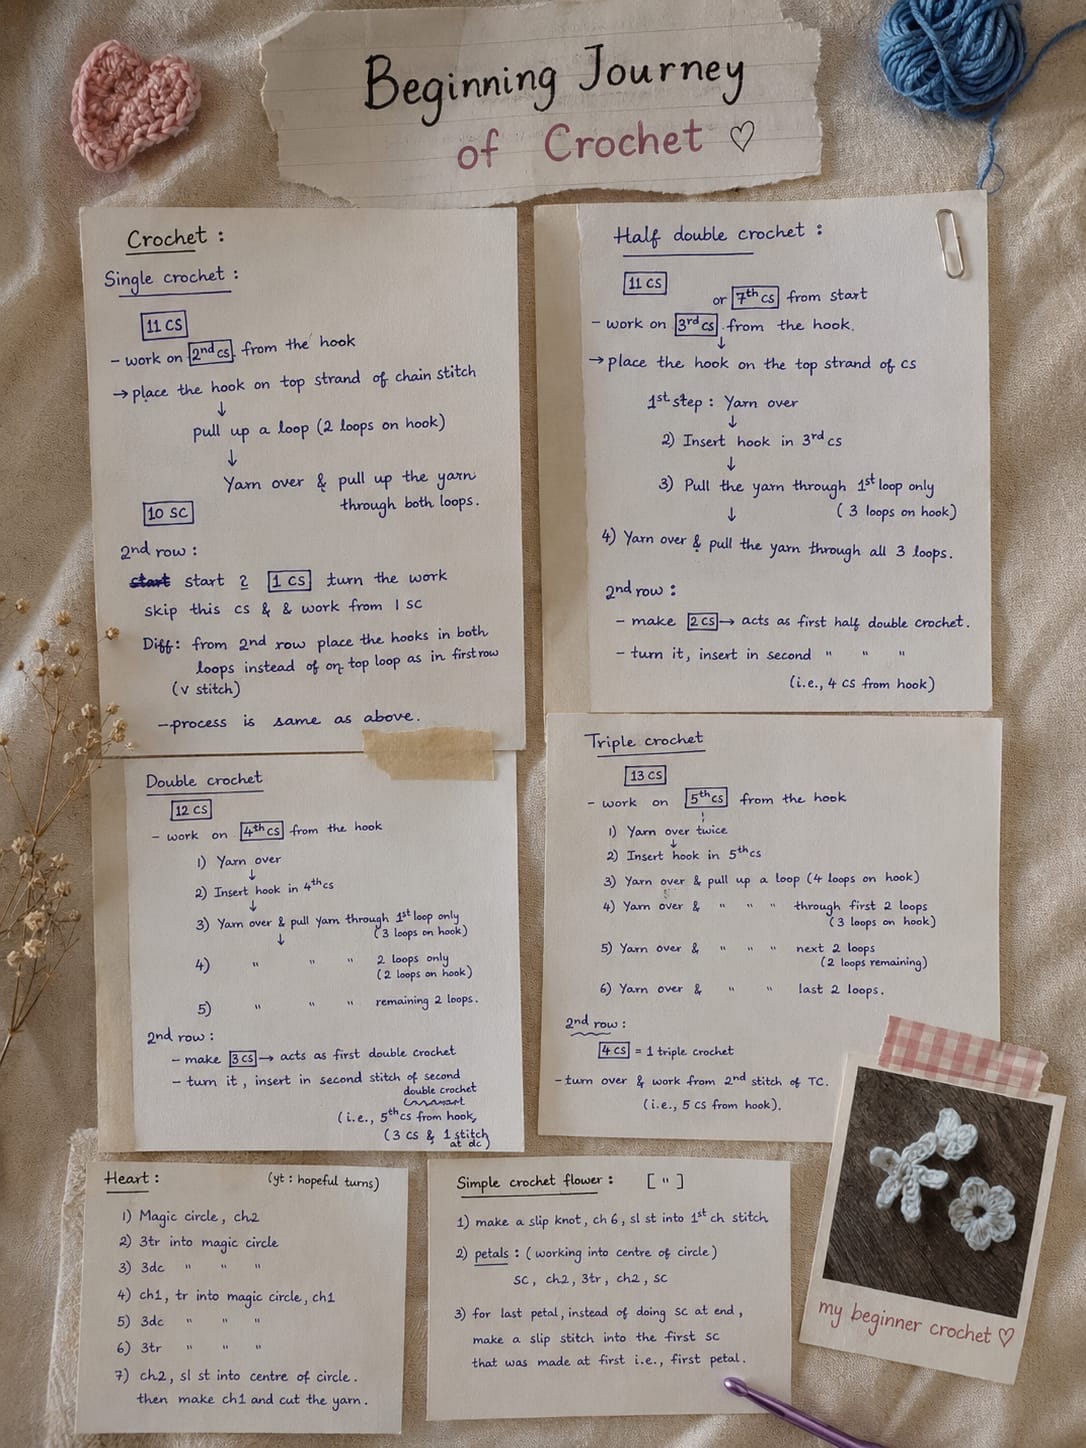 Beginning Journey
of Crochet ♡
Crochet :
Single crochet :
11 CS
- work on 2nd cs. from the hook
→ place the hook on top strand of chain stitch
↓
pull up a loop (2 loops on hook)
↓
Yarn over & pull up the yarn
through both loops.
10 SC
2nd row :
start start 2 1 CS turn the work
skip this cs & & work from 1 sc
Diff: from 2nd row place the hooks in both
loops instead of on top loop as in first row
(v stitch)
- process is same as above.
Half double crochet :
11 CS
or 7th cs from start
- work on 3rd cs. from the hook.
↓
→ place the hook on the top strand of cs
1st step : Yarn over
↓
2) Insert hook in 3rd cs
↓
3) Pull the yarn through 1st loop only
( 3 loops on hook)
↓
4) Yarn over & pull the yarn through all 3 loops.
2nd row :
- make 2 CS → acts as first half double crochet.
- turn it, insert in second " " "
(i.e., 4 cs from hook)
Double crochet
12 CS
- work on 4th cs from the hook
1) Yarn over
↓
2) Insert hook in 4th cs
↓
3) Yarn over & pull yarn through 1st loop only
(3 loops on hook)
↓
4) " " " 2 loops only
(2 loops on hook)
5) " " " remaining 2 loops.
2nd row :
- make 3 CS → acts as first double crochet
- turn it, insert in second stitch of second
double crochet
(i.e., 5th cs from hook,
(3 CS & 1 stitch
at dc)
Triple crochet
13 CS
- work on 5th cs from the hook
1) Yarn over twice
↓
2) Insert hook in 5th cs
3) Yarn over & pull up a loop (4 loops on hook)
4) Yarn over & " " " through first 2 loops
(3 loops on hook)
5) Yarn over & " " " next 2 loops
(2 loops remaining)
6) Yarn over & " " last 2 loops.
2nd row :
4 CS = 1 triple crochet
- turn over & work from 2nd stitch of TC.
(i.e., 5 cs from hook).
Heart : (yt : hopeful turns)
1) Magic circle, ch2
2) 3tr into magic circle
3) 3dc " " "
4) ch1, tr into magic circle, ch1
5) 3dc " " "
6) 3tr " " "
7) ch2, sl st into centre of circle.
then make ch1 and cut the yarn.
Simple crochet flower : [ " ]
1) make a slip knot, ch 6, sl st into 1st ch stitch
2) petals : (working into centre of circle)
sc, ch2, 3tr, ch2, sc
3) for last petal, instead of doing sc at end,
make a slip stitch into the first sc
that was made at first i.e., first petal.
my beginner crochet ♡